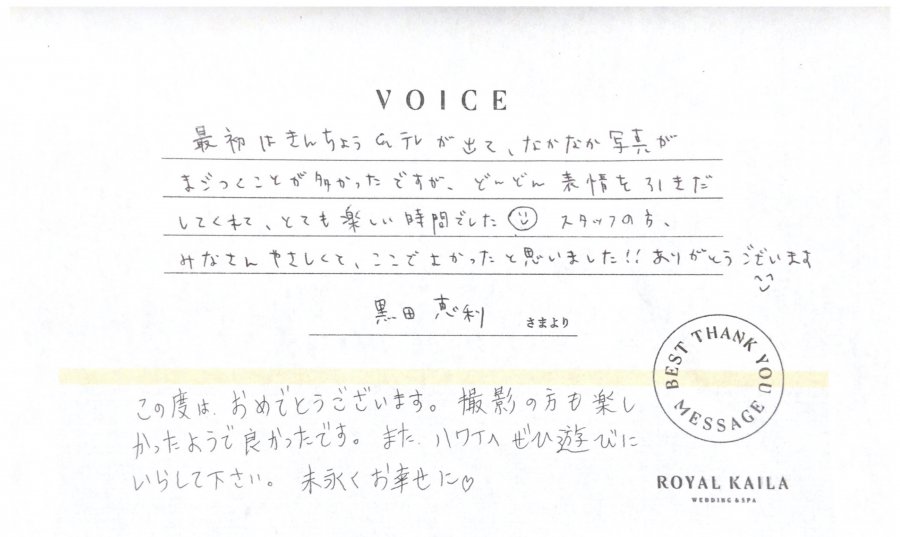 VOICE
最初はきんちょうandテレが出て、なかなか写真が
まごつくことが多かったですが、どんどん表情を引きだ
してくれて、とても楽しい時間でした☺ スタッフの方、
みなさんやさしくと、ここでよかったと思いました!! ありがとうございます
黒田 恵利 さまより
BEST THANK YOU MESSAGE
この度は、おめでとうございます。撮影の方も楽し
かったようで良かったです。また、ハワイへぜひ遊びに
いらして下さい。末永くお幸せに♡
ROYAL KAILA
WEDDING & SPA